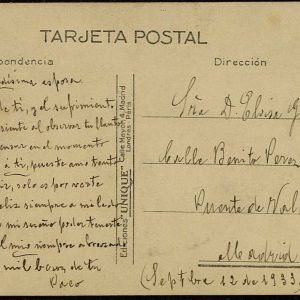 TARJETA POSTAL
pondencia
Dirección
dísima esposa
de ti, y el sufrimiento
siento al observar tu llanto
pensar en el momento
á ti, pues te amo tanto
solo es por verte
feliz siempre a mi lado
mi
el mio siempre abrazado
mil besos de tu
Paco
Ediciones "UNIQUE" Calle Mayor, 4, Madrid
Londres París
Sra D. Eloisa G
Calle Benito Perez
Puente de Val
Madrid
(Septbre 12 de 1933